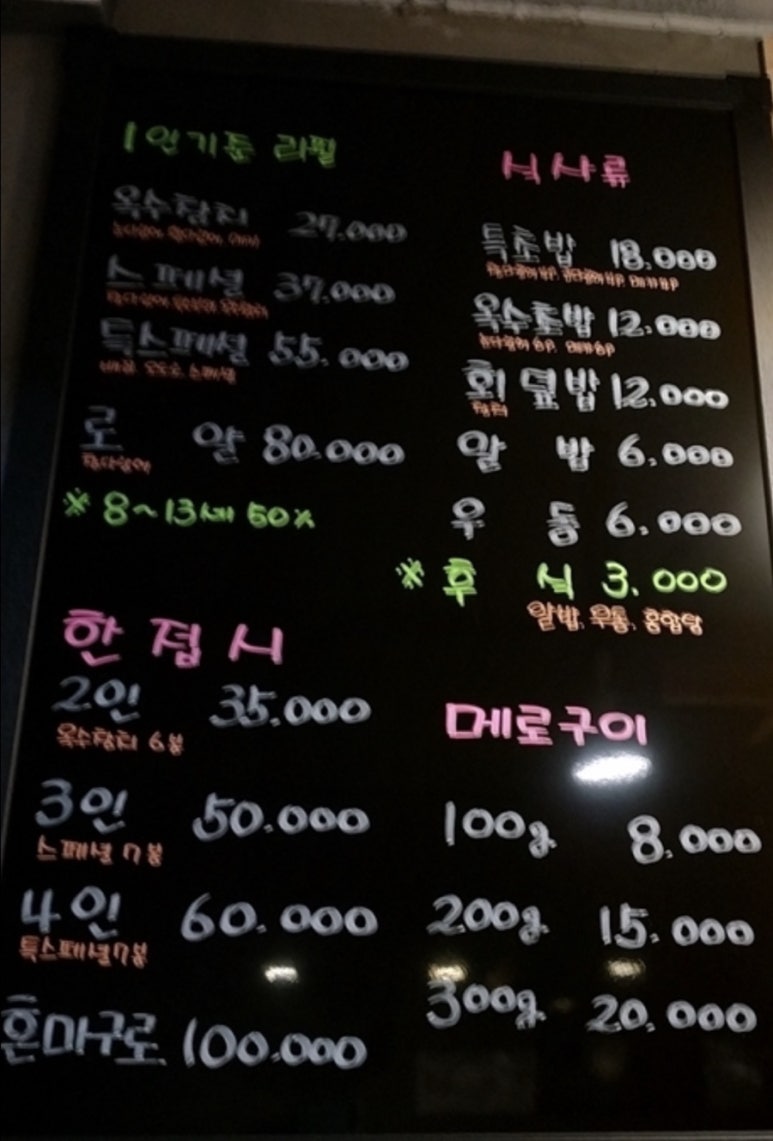 1인기준 리필
옥수참치 27.000
스페셜 37.000
특스페셜 55.000
로얄 80.000
참다랑어
※ 8~13세 50%
한접시
2인 35.000
옥수참치 6붕
3인 50.000
스페셜 7붕
4인 60.000
특스페셜 7붕
혼마구로 100.000
식사류
특초밥 18.000
옥수초밥 12.000
회덮밥 12.000
참치
알밥 6.000
우동 6.000
※ 후식 3.000
알밥, 우동, 홍합탕
메로구이
100g 8.000
200g 15.000
300g 20.000